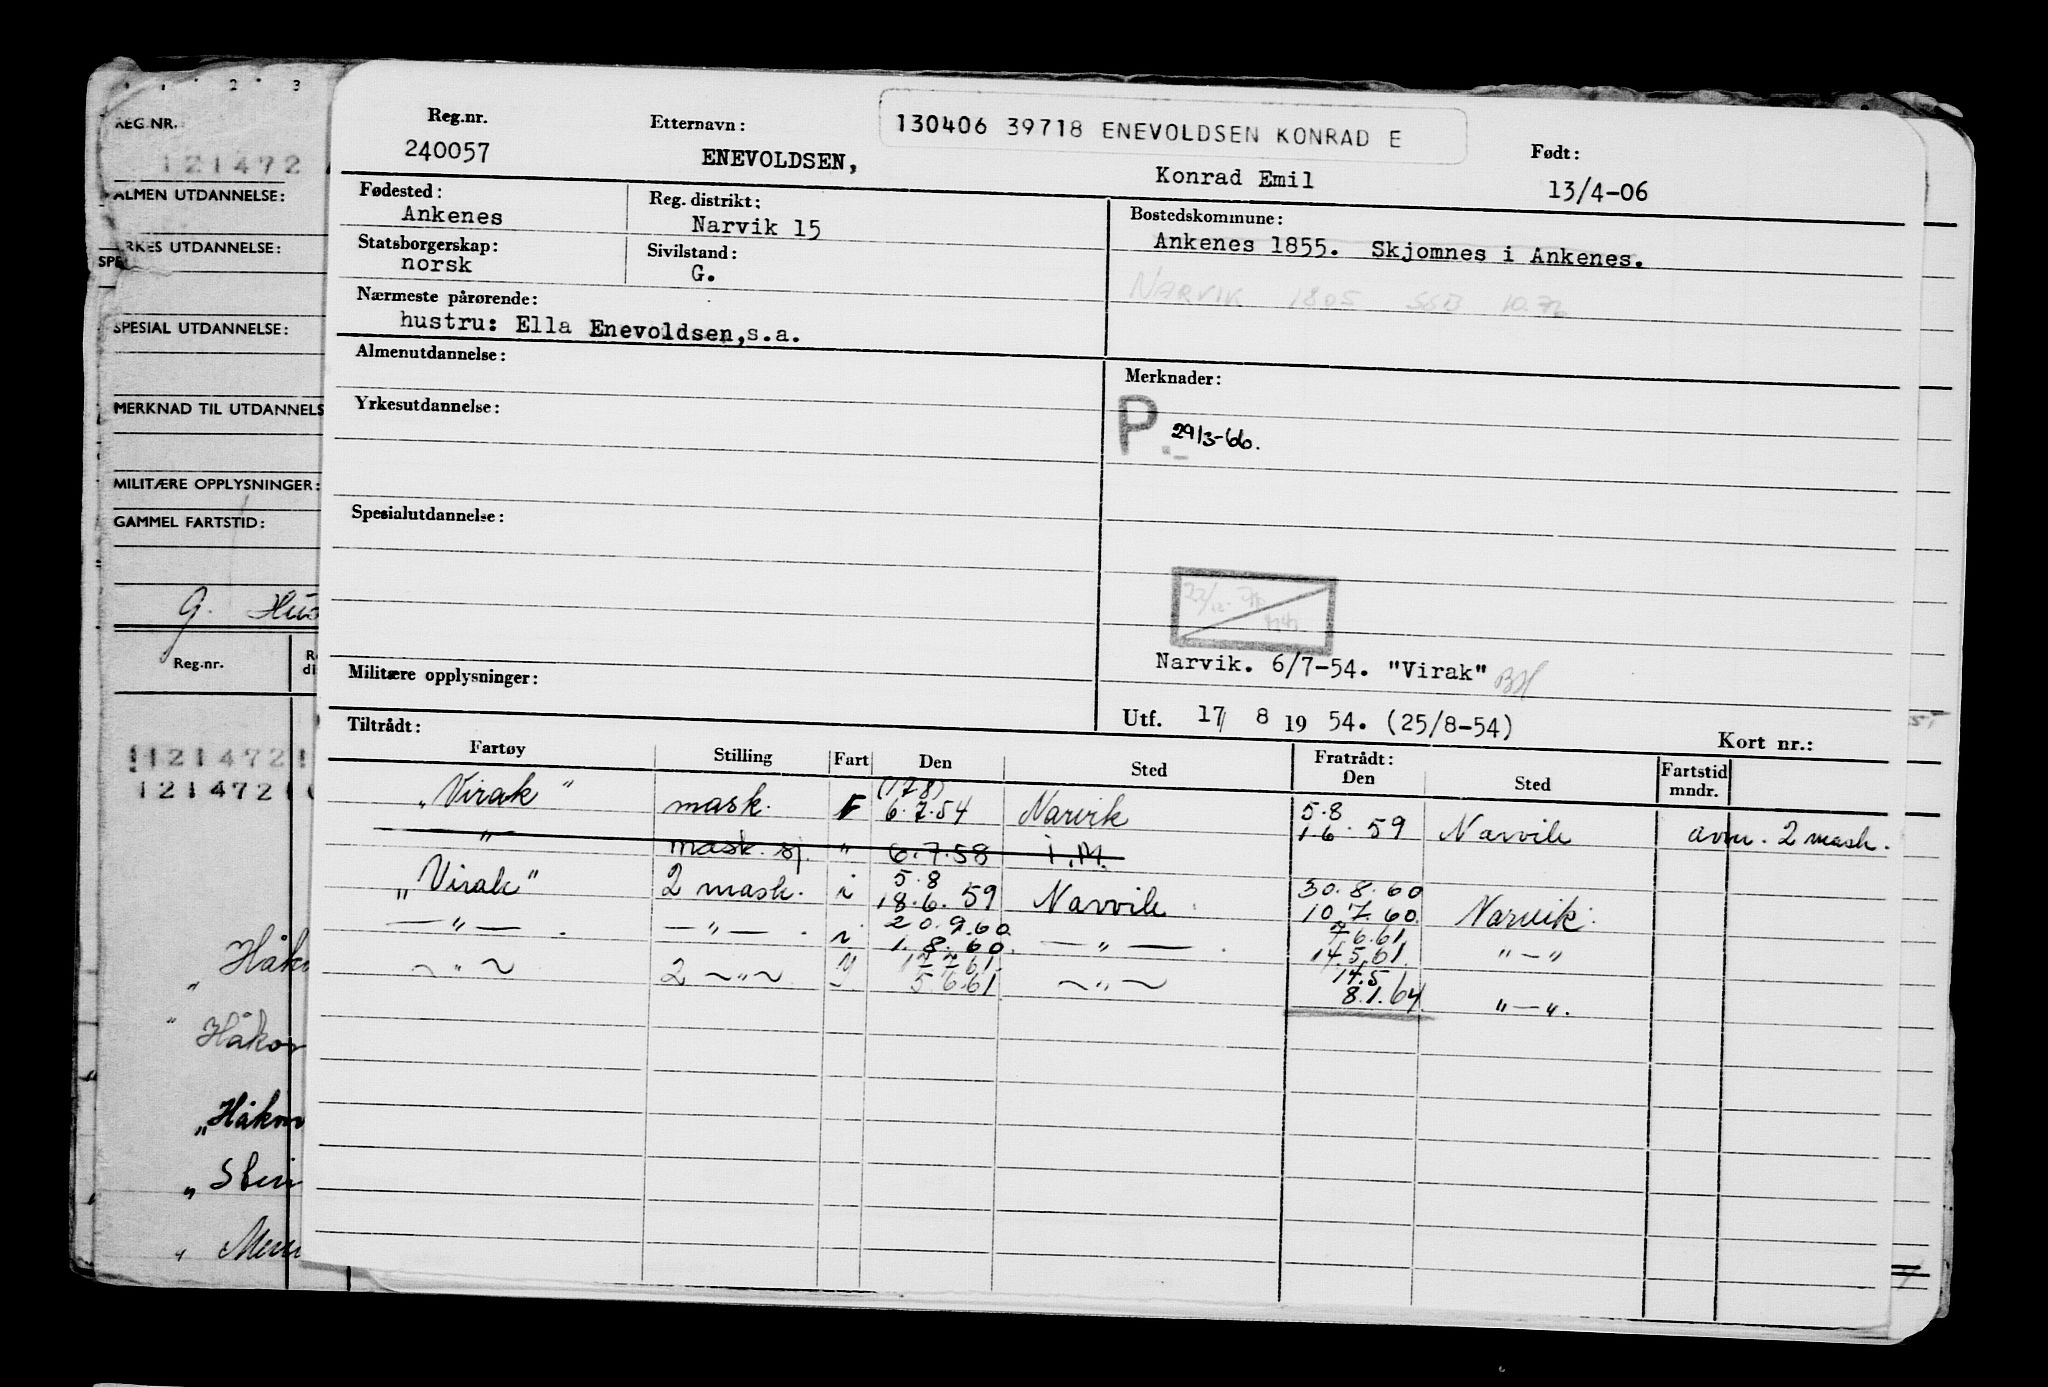 2 3
REG.NR.
121472
ALMEN UTDANNELSE:
YRKES UTDANNELSE:
SPESIAL UTDANNELSE:
MERKNAD TIL UTDANNELS
MILITÆRE OPPLYSNINGER:
GAMMEL FARTSTID:
G.
Reg.nr.
121472
121472
"Håkon
"Håkon
"Håkon
Reg.nr. Etternavn: 130406 39718 ENEVOLDSEN KONRAD E Født:
240057 ENEVOLDSEN, Konrad Emil 13/4-06
Fødested: Reg. distrikt: Bostedskommune:
Ankenes Narvik 15 Ankenes 1855. Skjomnes i Ankenes.
Statsborgerskap: Sivilstand:
norsk G. NARVIK 1805 SSB 10.76
Nærmeste pårørende:
hustru: Ella Enevoldsen,s.a.
Almenutdannelse: Merknader:
Yrkesutdannelse: P. 29/3-66.
Spesialutdannelse:
22/12.
Narvik. 6/7-54. "Virak" BH
Militære opplysninger:
Utf. 17/ 8 19 54. (25/8-54)
Tiltrådt: Kort nr.:
Fartøy Stilling Fart Den Sted Fratrådt: Den Sted Fartstid mndr.
(17 8) 5.8
"Virak" mask. F 6.7.54 Narvik 16 . 59 Narvik avm. 2 mask.
" mask. sj. " 6.7.58 i.M.
5.8 30.8.60
"Virak" 2 mask. i 18.6.59 Narvik 10 7.60 Narvik.
20.9.60 7 6.61
—"— —"— i 1.8.60. —"— 14.5.61. "—"
17 7 61. 14.5
~"~ 2 ~"~ 5 6.61 ~"~ 8.1.64. "—".